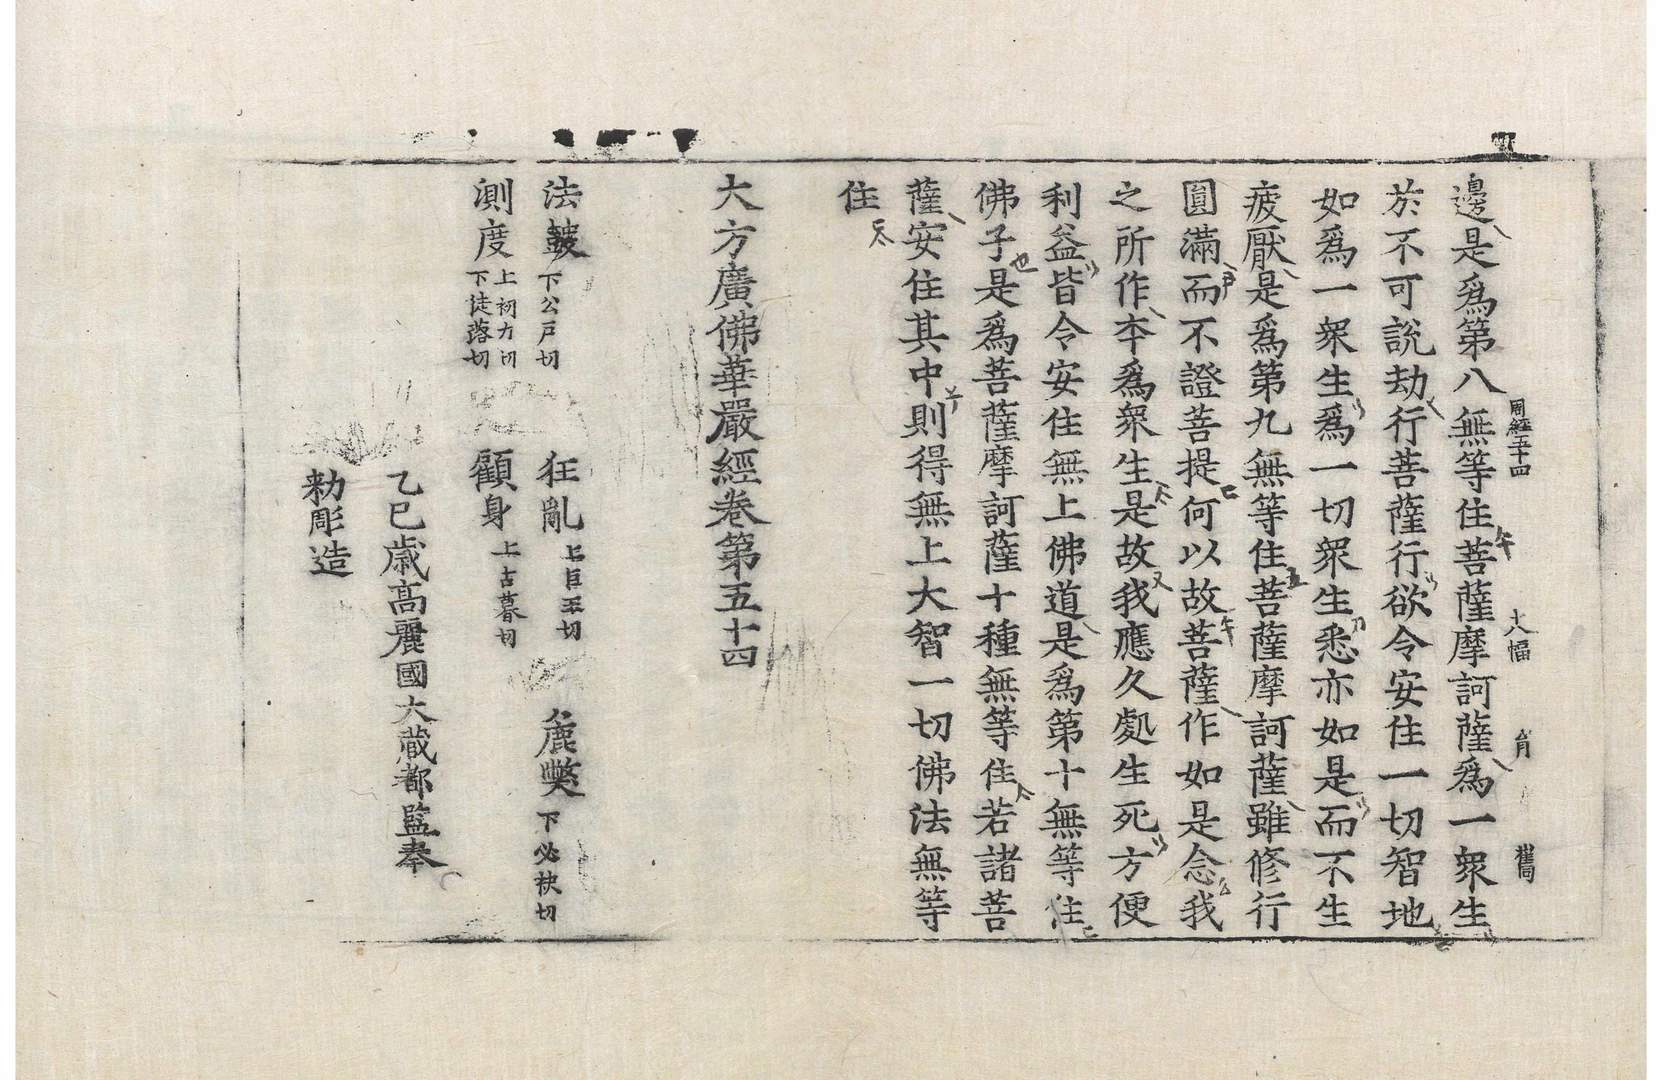 周經五十四
十八幅
邊是爲第八無等住菩薩摩訶薩爲一衆生
於不可說劫行菩薩行欲令安住一切智地
如爲一衆生爲一切衆生悉亦如是而不生
疲厭是爲第九無等住菩薩摩訶薩雖修行
圓滿而不證菩提何以故菩薩作如是念我
之所作本爲衆生是故我應久處生死方便
利益皆令安住無上佛道是爲第十無等住
佛子是爲菩薩摩訶薩十種無等住若諸菩
薩安住其中則得無上大智一切佛法無等
住
大方廣佛華嚴經卷第五十四
法鼓下公戶切 狂亂上巨王切 麁弊下必袂切
測度上初力切下徒落切 顧身上古暮切
乙巳歲高麗國大藏都監奉
勑彫造